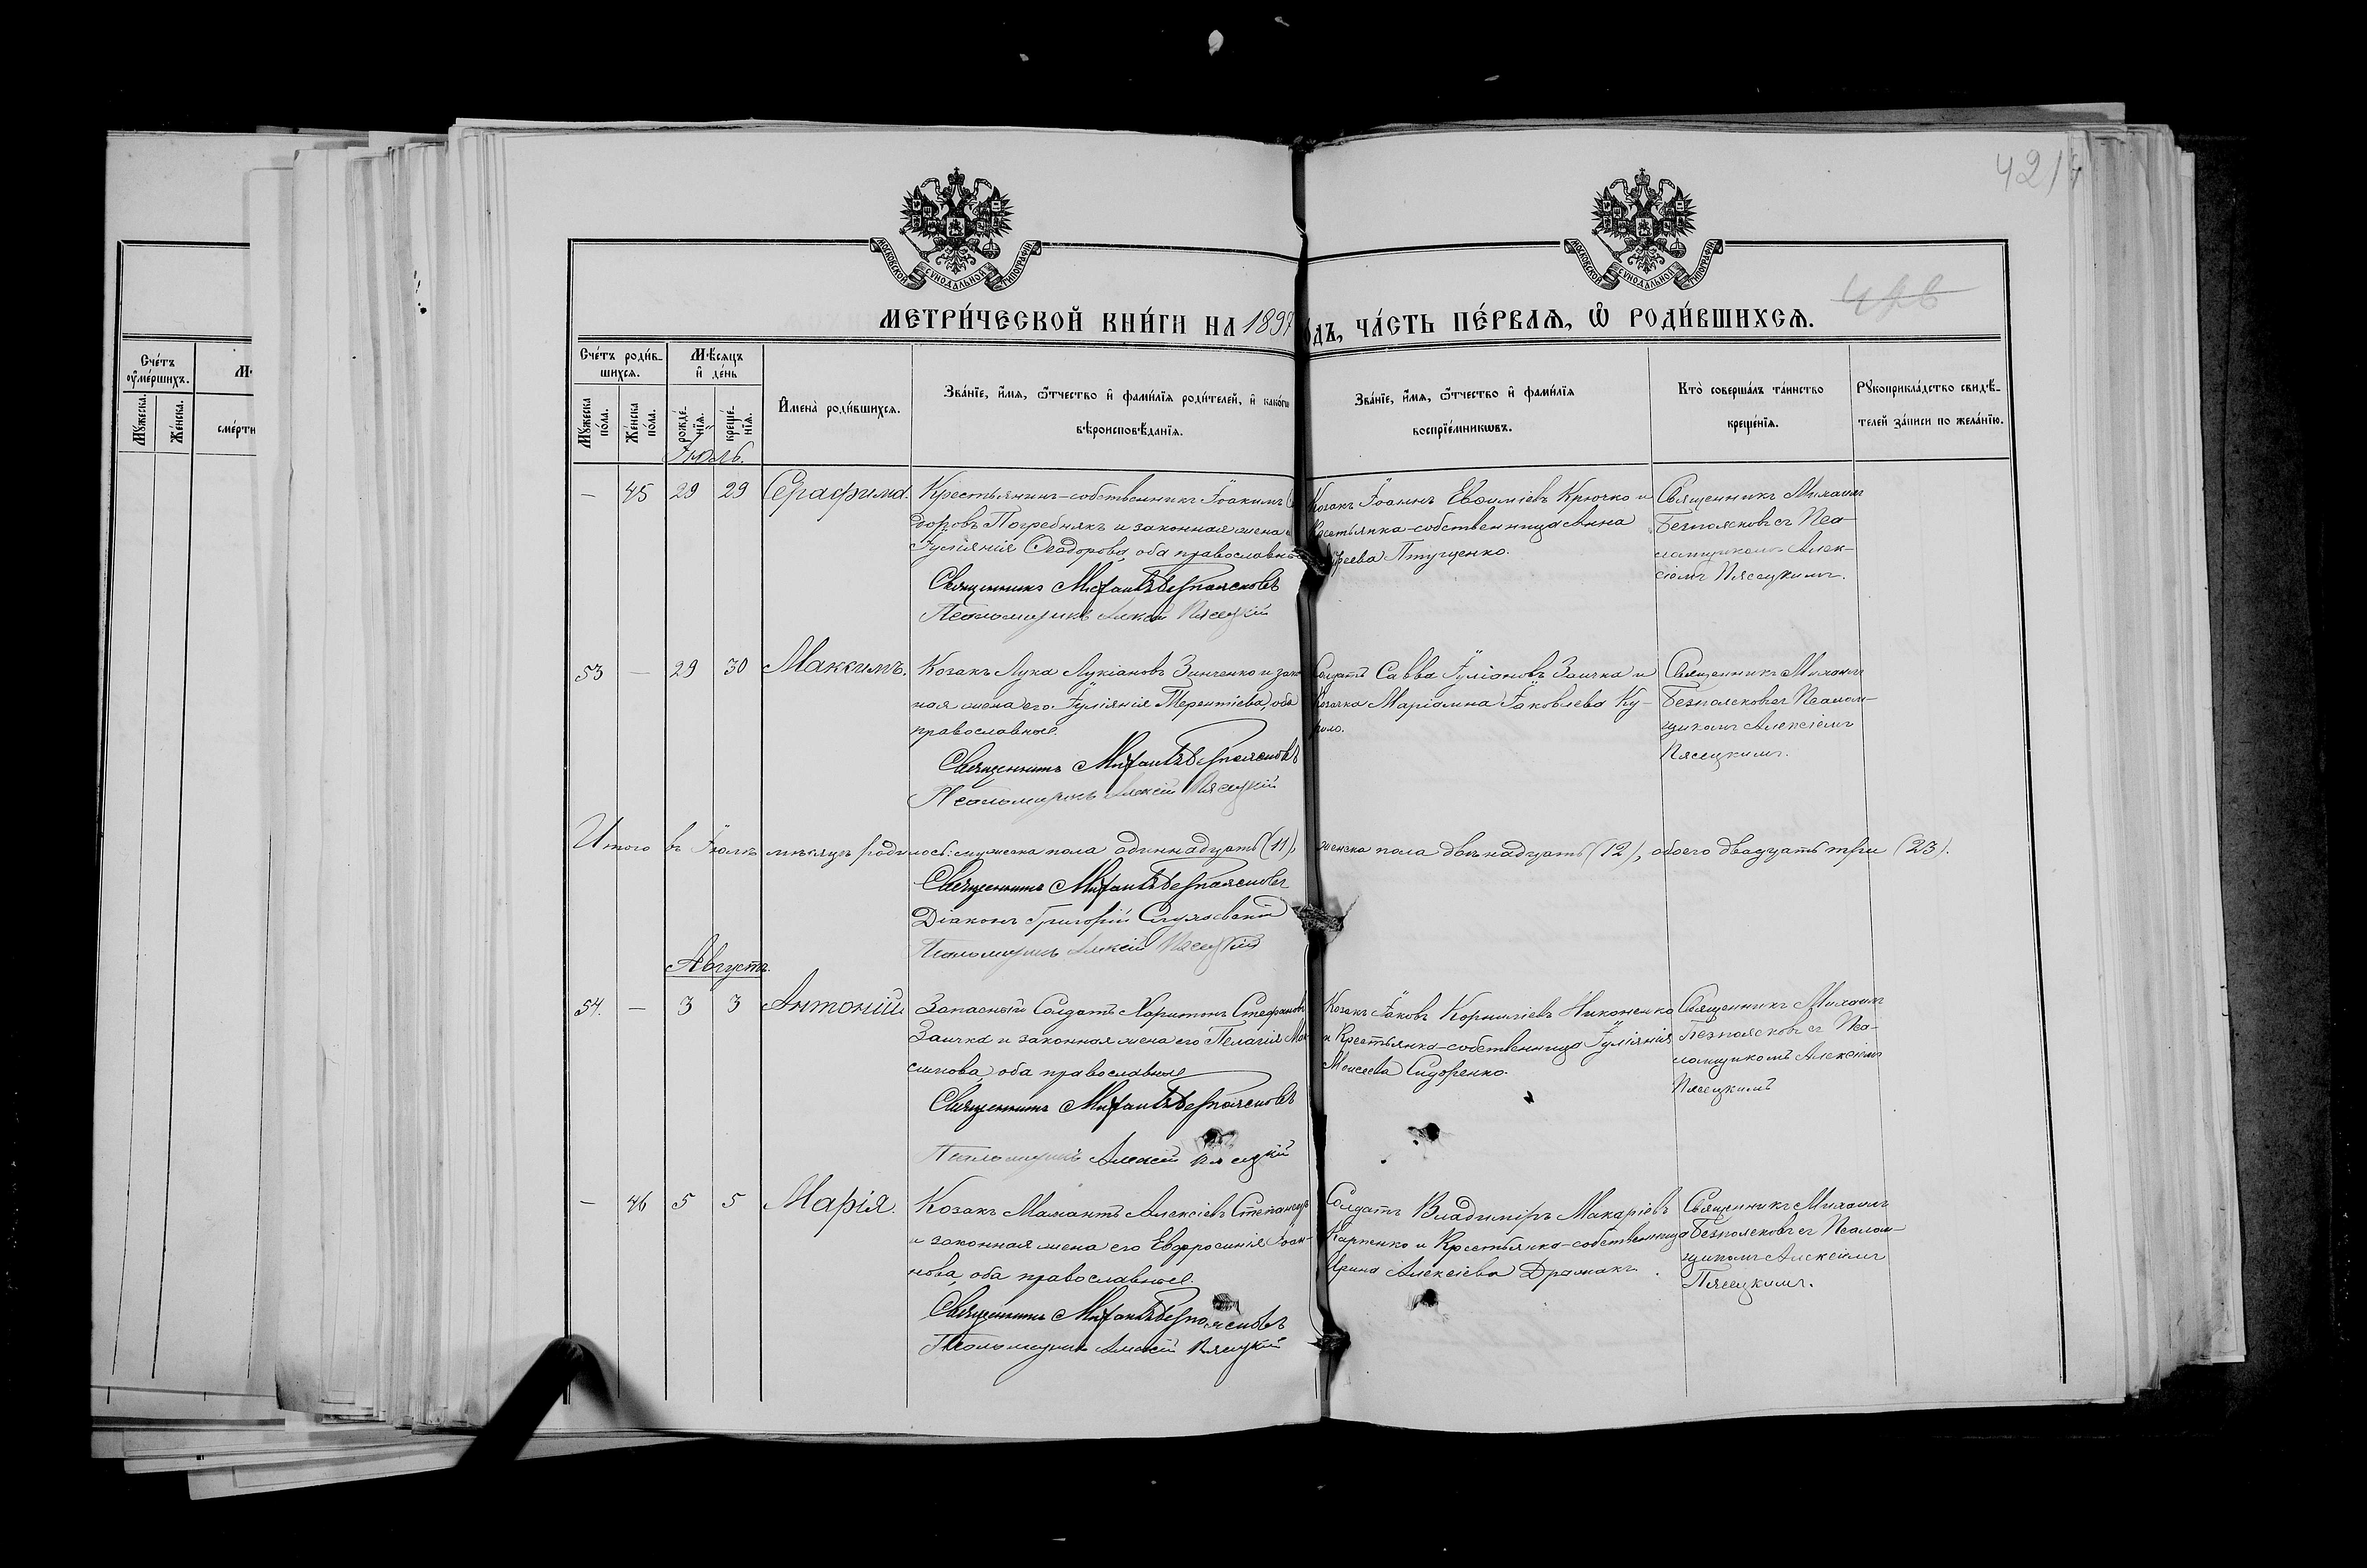 421
МОСКОВСКОЙ СУНОДАЛЬНОЙ ТИПОГРАФІИ
МОСКОВСКОЙ СУНОДАЛЬНОЙ ТИПОГРАФІИ
МЕТРИ́ЧЕСКОЙ КНИ́ГИ НА 1897
дъ, ЧА́СТЬ ПЕ́РВАѦ, Ѽ РОДИ́ВШИХСѦ.
Сче́тъ ᲂу҆ме́ршихъ.
Мꙋ́жеска.
Же́нска.
М
сме́рти
Сче́тъ роди́в-
шихсѧ.
Мꙋ́жеска по́ла.
Же́нска по́ла.
Мѣ́сѧцъ
и҆ де́нь
рожде́-
нїѧ.
креще́-
нїѧ.
И҆мена̀ роди́вшихсѧ.
Зва́нїе, и҆́мѧ, ѻ҆́тчество и҆ фами́лїѧ роди́телей, и҆ како́гѡ
вѣроисповѣ́данїѧ.
Зва́нїе, и҆́мѧ, ѻ҆́тчество и҆ фами́лїѧ
воспрїе́мникѡвъ.
Кто̀ соверша́лъ та́инство
креще́нїѧ.
Рꙋкоприкла́дство свидѣ́-
телей за́писи по жела́нїю.
Іюль.
— 45 29 29 Серафима.
Крестьянинъ-собственникъ Іоакимъ
доровъ Погребнякъ и законная жена
Іуліянія Ѳеодорова, оба православные
Священникъ Михаилъ Безпоясковъ
Псаломщикъ Алексій Пясецкій
Козакъ Іоаннъ Евѳиміевъ Крючко и
Крестьянка-собственница Анна
Птущенко.
Священникъ Михаилъ
Безпоясковъ съ Пса-
ломщикомъ Алек-
сіемъ Пясецкимъ.
53 — 29 30 Максимъ.
Козакъ Лука Лукіановъ Зинченко и зако
ная жена его Іуліянія Терентіева, оба
православные
Священникъ Михаилъ Безпоясковъ
Псаломщикъ Алексій Пясецкій
Солдатъ Савва Іуліановъ Заичка и
Козачка Маріамна Іаковлева Ку-
Священникъ Михаилъ
Безпоясковъ съ Псалом-
щикомъ Алексіемъ
Пясецкимъ.
Итого въ Іюлѣ мѣсяцѣ родилось: мужеска пола одиннадцать (11), женска пола двѣнадцать (12), обоего двадцать три (23).
Священникъ Михаилъ Безпоясковъ
Діаконъ Григорій
Псаломщикъ Алексій Пясецкій
Августъ.
54. — 3 3 Антоній
Запасный Солдатъ Харитонъ Стефановъ
Заичка и законная жена его Пелагія Мак
симова оба православные
Священникъ Михаилъ Безпоясковъ
Псаломщикъ Алексій Пясецкій
Козакъ Іаковъ Корниліевъ Никоненко
и Крестьянка-собственница Іуліянія
Моисеева Сидоренко.
Священникъ Михаилъ
Безпоясковъ съ Пса-
ломщикомъ Алексіемъ
Пясецкимъ
— 46 5 5 Марія.
Козакъ Мамантъ Алексіевъ
и законная жена его Евфросинія Іоан-
нова, оба православные.
Священникъ Михаилъ Безпоясковъ
Псаломщикъ Алексій Пясецкій
Солдатъ Владиміръ Макаріевъ
Карпенко и Крестьянка-собственница
Ирина Алексіева
Священникъ Михаилъ
Безпоясковъ съ Псалом-
щикомъ Алексіемъ
Пясецкимъ.